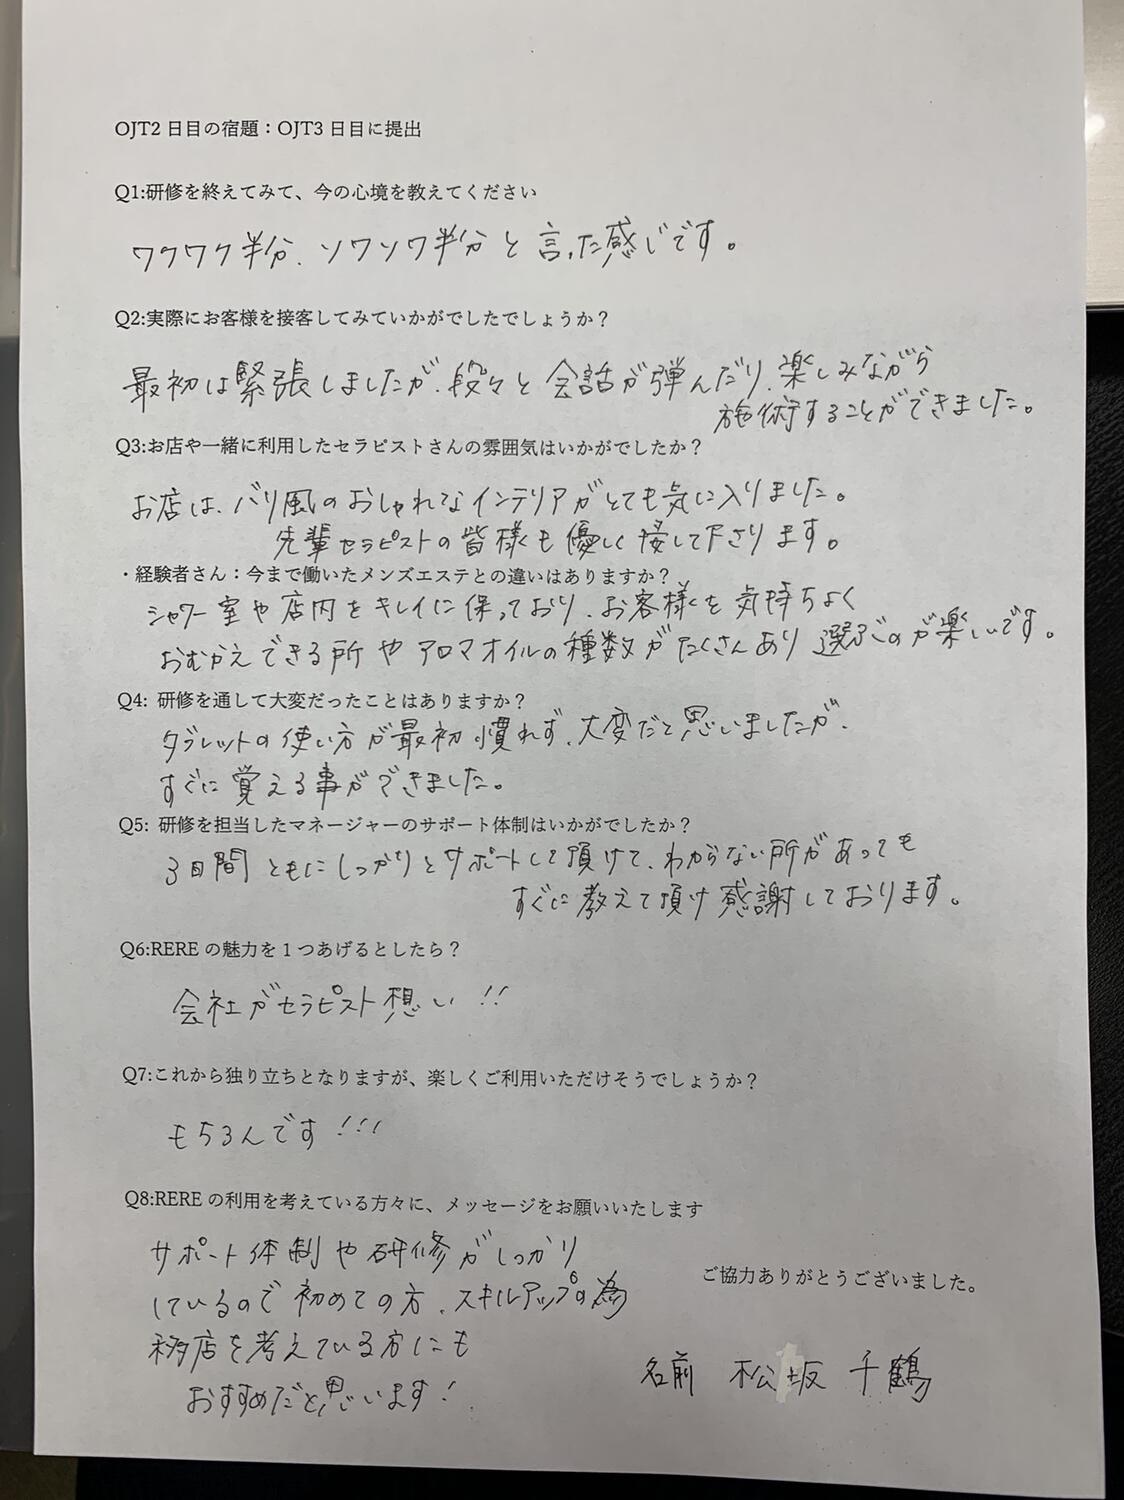 OJT2 日目の宿題：OJT3 日目に提出
Q1:研修を終えてみて、今の心境を教えてください
ワクワク半分、ソワソワ半分と言った感じです。
Q2:実際にお客様を接客してみていかがでしたでしょうか？
最初は緊張しましたが、段々と会話が弾んだり、楽しみながら
施術することができました。
Q3:お店や一緒に利用したセラピストさんの雰囲気はいかがでしたか？
お店は、バリ風のおしゃれなインテリアがとても気に入りました。
先輩セラピストの皆様も優しく接して下さります。
・経験者さん：今まで働いたメンズエステとの違いはありますか？
シャワー室や店内をキレイに保っており、お客様を気持ちよく
おむかえできる所やアロマオイルの種数がたくさんあり選ぶのが楽しいです。
Q4: 研修を通して大変だったことはありますか？
タブレットの使い方が最初慣れず、大変だと思いましたが、
すぐに覚える事ができました。
Q5: 研修を担当したマネージャーのサポート体制はいかがでしたか？
3日間ともにしっかりとサポートして頂けて、わからない所があっても
すぐに教えて頂け感謝しております。
Q6:RERE の魅力を 1 つあげるとしたら？
会社がセラピスト想い!!
Q7:これから独り立ちとなりますが、楽しくご利用いただけそうでしょうか？
もちろんです!!!
Q8:RERE の利用を考えている方々に、メッセージをお願いいたします
サポート体制や研修がしっかり
しているので初めての方、スキルアップの為
移店を考えている方にも
おすすめだと思います!
ご協力ありがとうございました。
名前 松坂 千鶴